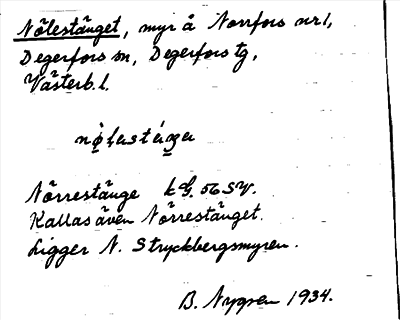 Nölestänget, myr å Norrfors nr 1,
Degerfors sn, Degerfors tg,
Västerb. l.
Nörrestänge k G. 56 SV.
Kallas även Nörrestänget.
Ligger N. Stryckbergsmyren.
B. Nygren 1934.